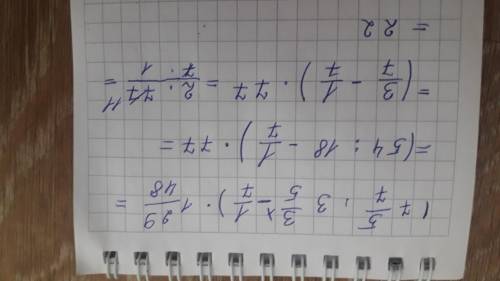 (7 5/7 : 3 3/5 x − 1/7) · 1 29/48 =
= (54 : 18 − 1/7) · 77 =
= (3/7 − 1/7) · 77 = 2 · 77 11 / 7 · 1 =
= 22